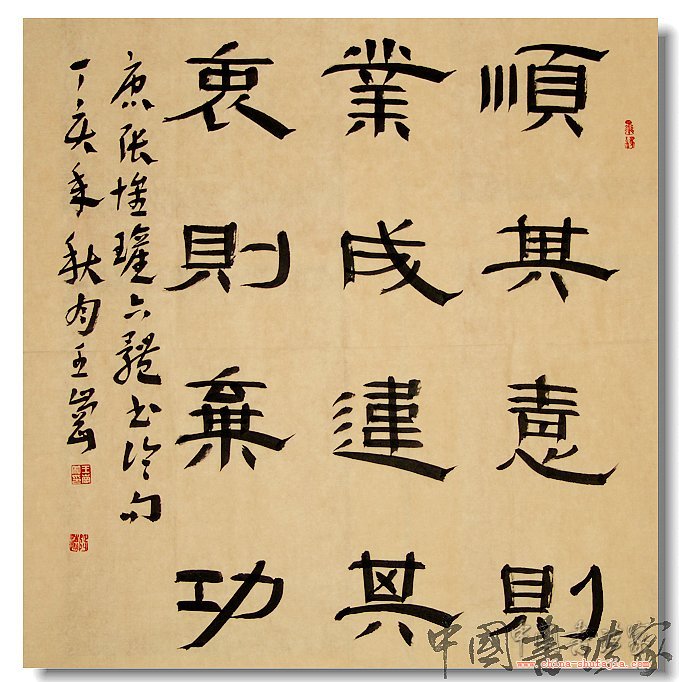 順其意則
業成違其
衷則棄功
唐張懷瓘六體書論句
丁亥年秋月王
中國書法家
www.china-shufajia.com